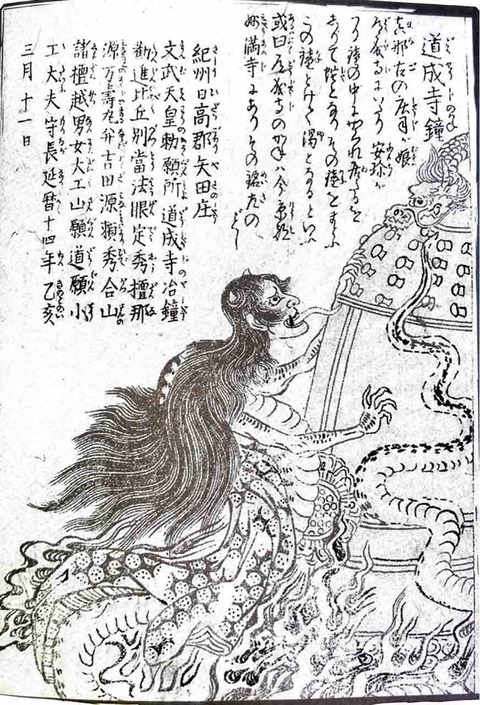 道成寺鐘
真那古の庄司が娘
道成寺にいたり安珍が
つり鐘の中にかくれ居たるを
しりて蛇となりその鐘をまとふ
この鐘とけて湯となるといふ
或曰道成寺のかねは今京都
妙満寺にありその銘左のごとし
紀州日高郡矢田庄
文武天皇勅願所道成寺冶鐘
勧進比丘別當法眼定秀檀那
源万壽丸并吉田源頼秀合山
諸檀越男女大工山願道願小
工大夫守長延暦十四年乙亥
三月十一日